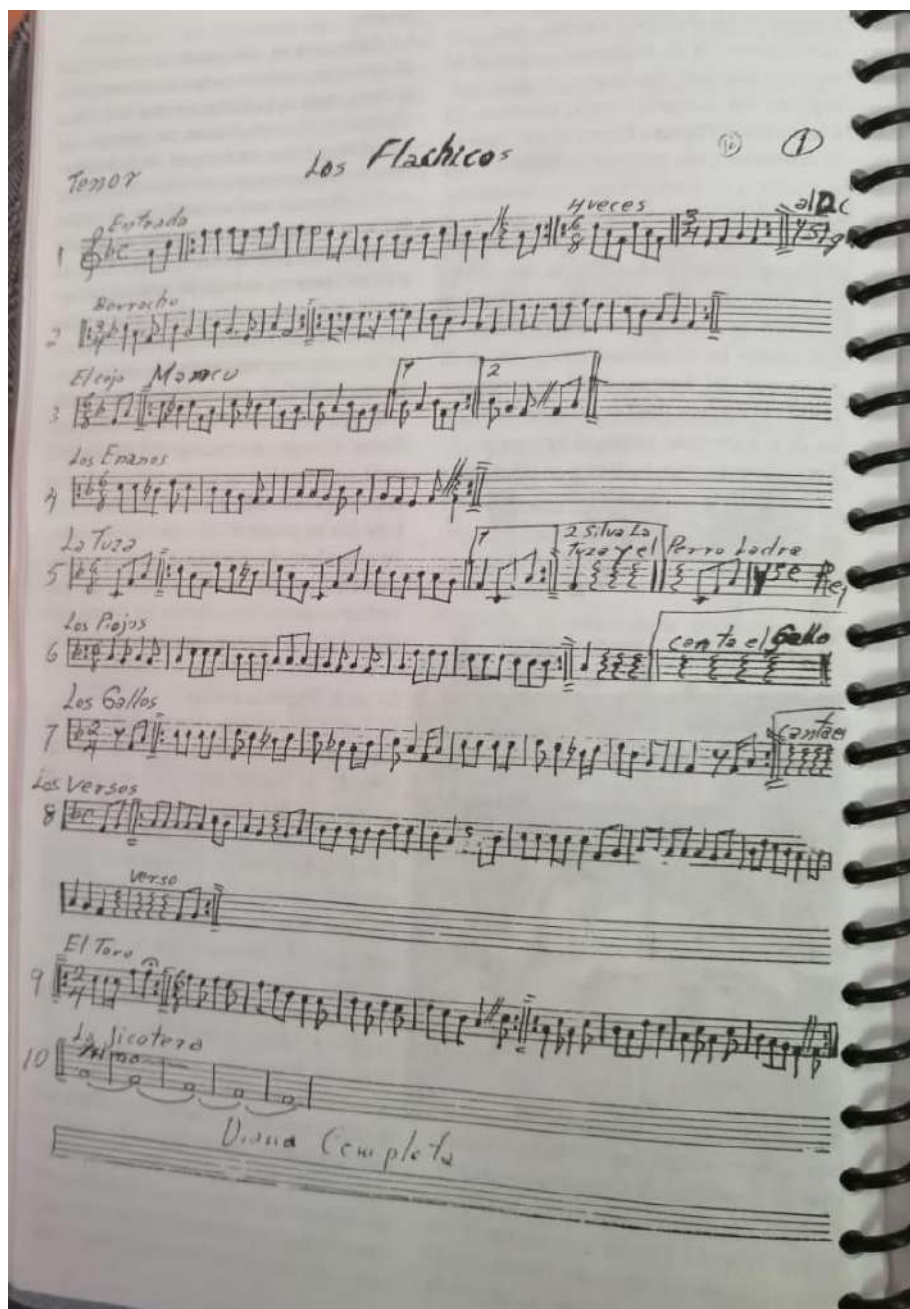 Los Flachicos
1
Tenor
Entrada
4 veces
al DC
1
Borracho
2
El cojo Manco
1 2
3
Los Enanos
4
La Tuza
1 2 Silva La
Tuza y el Perro Ladra
5 y se Rep
Los Piojos
6 canta el Gallo
Los Gallos
7 canta el
Los Versos
8
Verso
El Toro
9
La Jicotera
10
Diana Completa